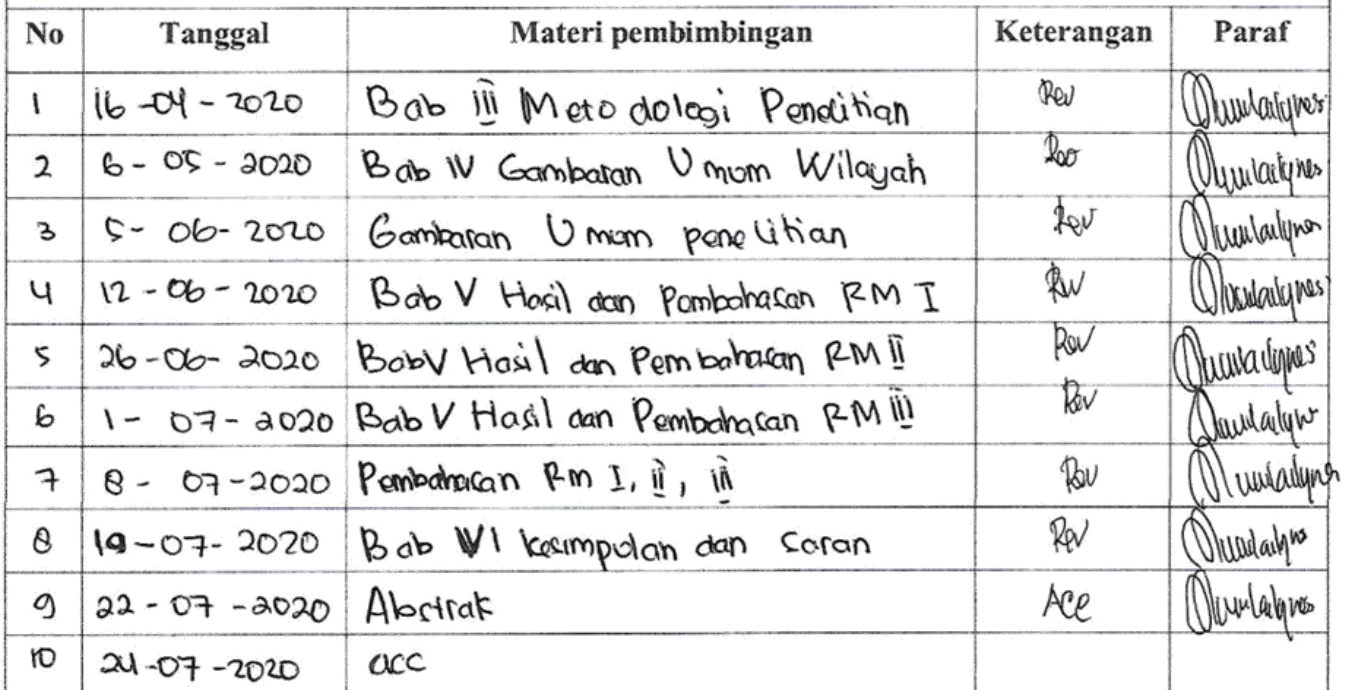 No Tanggal Materi pembimbingan Keterangan Paraf
1 16-04-2020 Bab III Metodologi Penelitian Rev
2 6-05-2020 Bab IV Gambaran Umum Wilayah Rev
3 5-06-2020 Gambaran Umum penelitian Rev
4 12-06-2020 Bab V Hasil dan Pembahasan RM I Rev
5 26-06-2020 Bab V Hasil dan Pembahasan RM II Rev
6 1-07-2020 Bab V Hasil dan Pembahasan RM III Rev
7 8-07-2020 Pembahasan Rm I, II, III Rev
8 19-07-2020 Bab VI kesimpulan dan Saran Rev
9 22-07-2020 Abstrak Acc
10 24-07-2020 acc